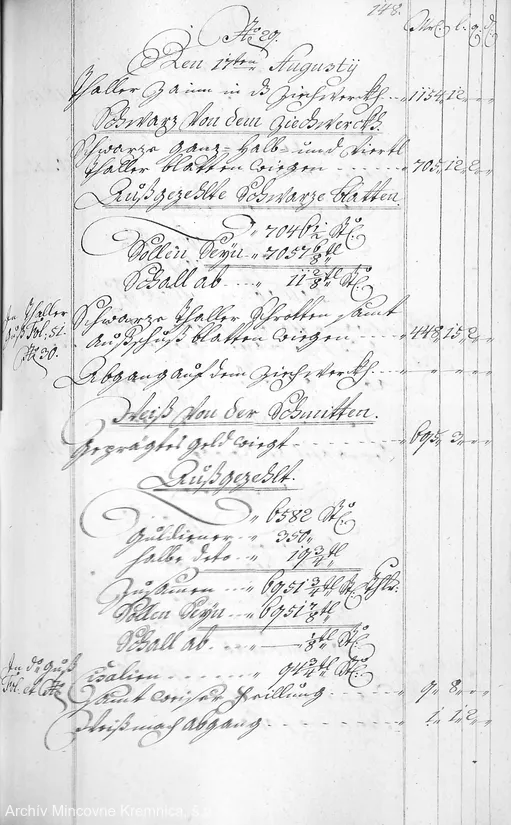 148.
No. 29. Mrk l. q. d
Den 17ten Augusty
Thaller Zainn in dß Ziechwerckh 1154 12
Schwarz Von dem Ziechwerckh.
Schwarze Ganz- Halb- und Viertl
Thaller blatten wiegen 705 12 2
Außgezehlte Schwarze blatten.
7046 1/2 St
Sollen Seyn 7057 6/8tl
Schall ab 11 2/8tl St
In Thaller
Guß Fol: 51.
No. 30.
Schwarze Thaller Schrotten samt
Außschuß blatten wiegen 448 15 2
Abgang auf dem Ziechwerckh
Weiß Von der Schmitten.
Geprägtes Geld wiegt 695 3
Außgezehlt.
6582 St
Guldiener 350
halbe deto 19 3/4tl
Zusammen 6951 3/4tl St Thlr.
Sollen Seyn 6951 7/8tl
Schall ab 1/8tl St
In do Guß
Fol. et No
Cisalien 94 3/4tl St
samt weiser Feillung 9 8
Weißmach Abgang 1 12
Archiv Mincovne Kremnica, š.p.